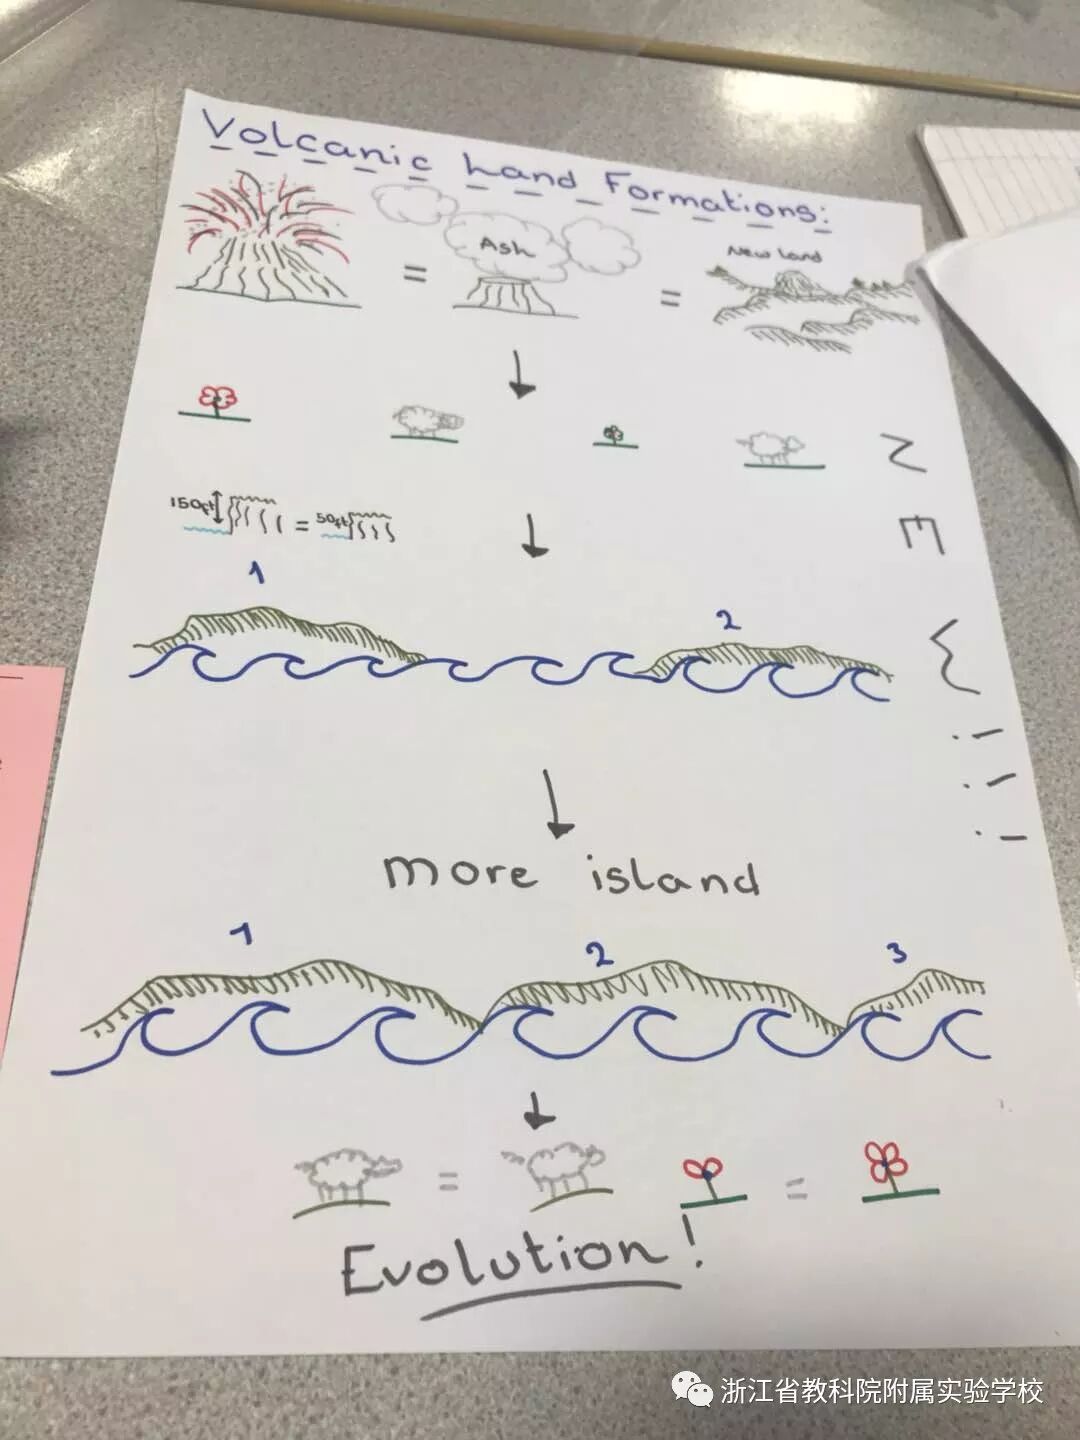 Volcanic Land Formations:
Ash
New land
=
=
150ft = 50ft
1
2
more island
1
2
3
=
=
Evolution!
浙江省教科院附属实验学校